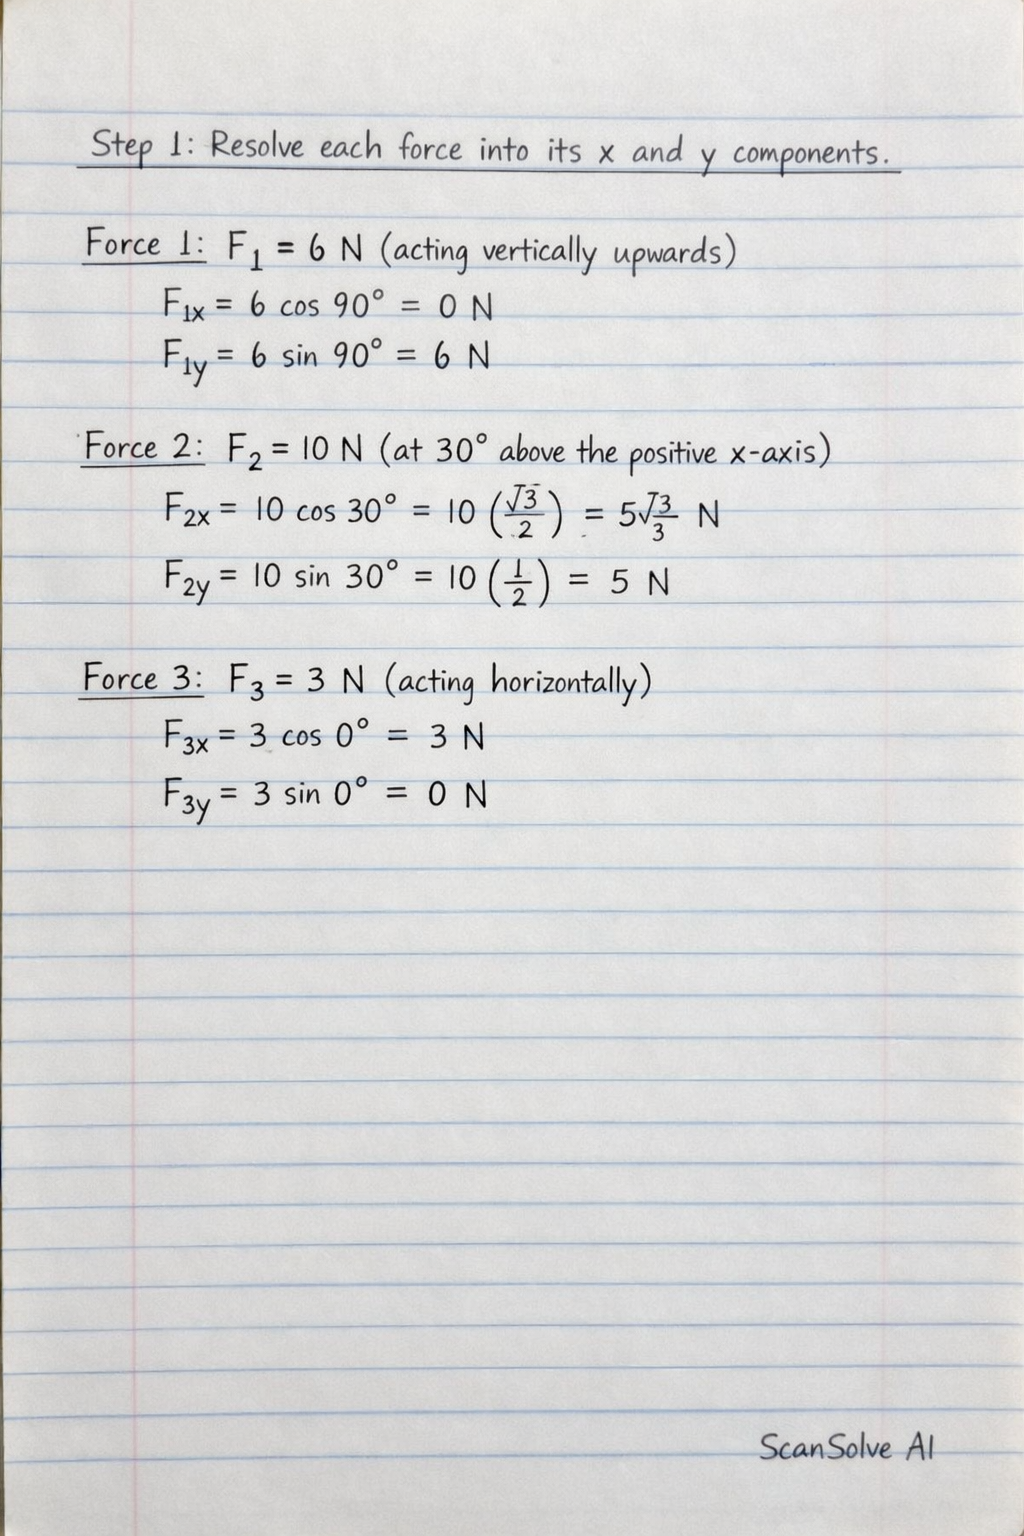 Step 1: Resolve each force into its x and y components.
Force 1: F₁ = 6 N (acting vertically upwards)
F₁ₓ = 6 cos 90° = 0 N
F₁y = 6 sin 90° = 6 N
Force 2: F₂ = 10 N (at 30° above the positive x-axis)
F₂ₓ = 10 cos 30° = 10 (√3/2) = 5√3/3 N
F₂y = 10 sin 30° = 10 (1/2) = 5 N
Force 3: F₃ = 3 N (acting horizontally)
F₃ₓ = 3 cos 0° = 3 N
F₃y = 3 sin 0° = 0 N
ScanSolve AI